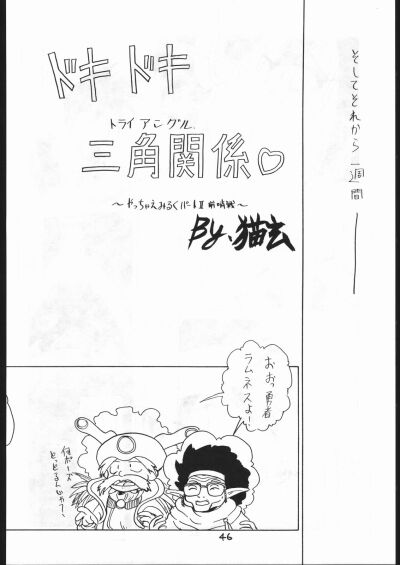 そしてそれから一週間
ドキドキ
トライアングル
三角関係♡
～やっちゃえみるくパートⅡ前哨戦～
By.猫玄
おお勇者
ラムネスよ！
何ポーズ
とっとるんじゃ？
46